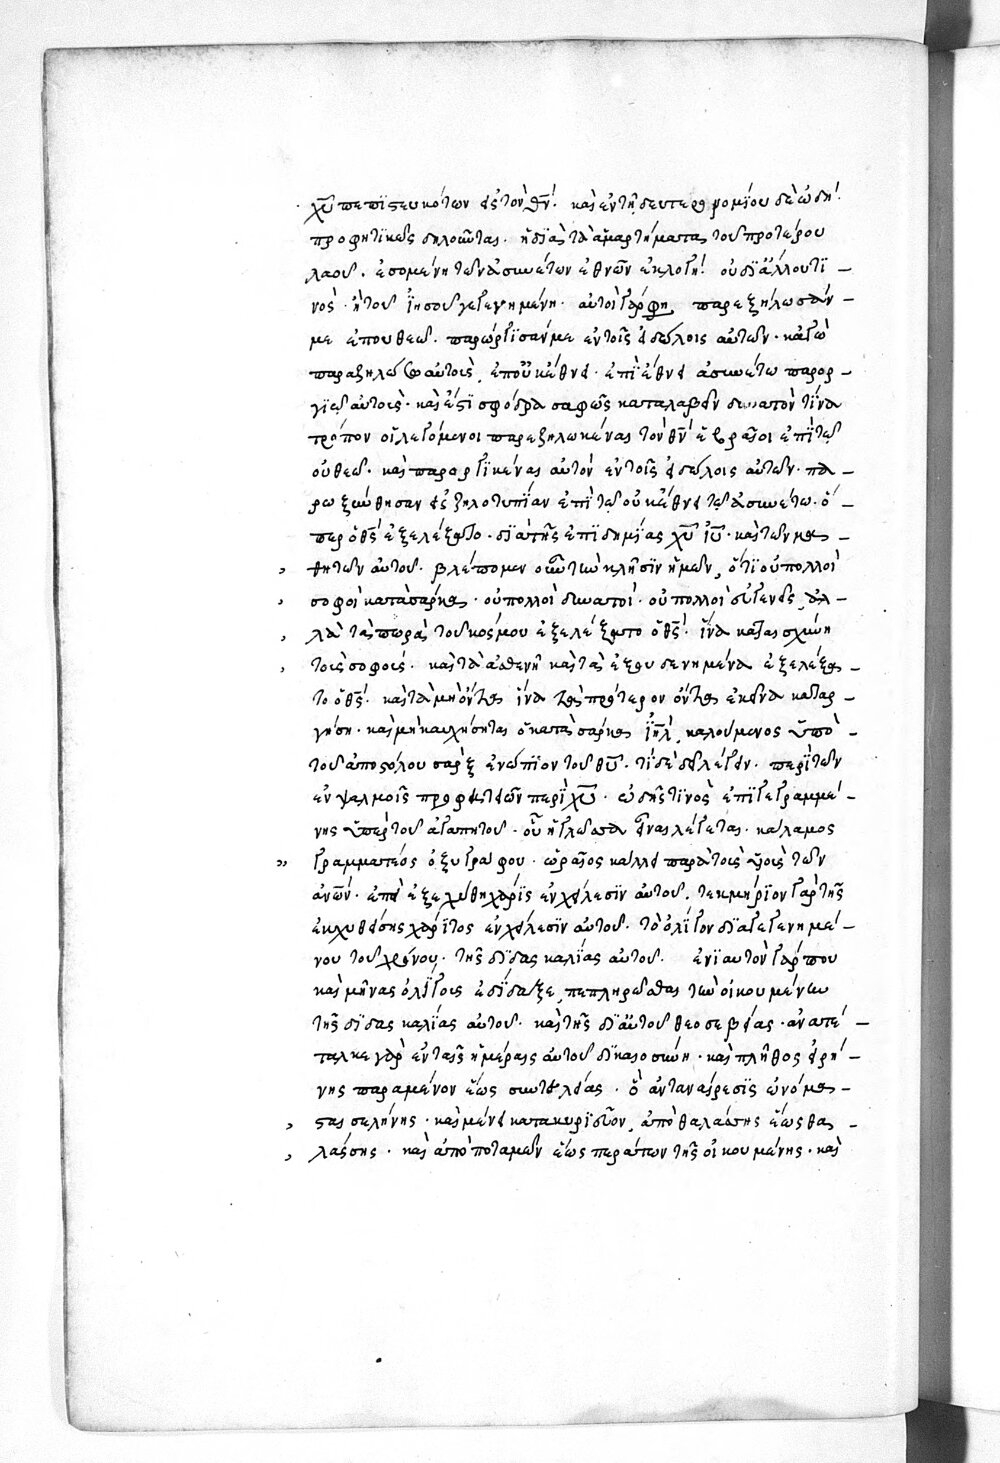 χῦ πεπιστευκότων εἰς τὸν θν̄. καὶ ἐν τῆ δευτερονομίου δὲ ὠδῆ.
προφητικῶς δηλοῦται. ἡ διὰ τὰ ἁμαρτήματα τοῦ προτέρου
λαοῦ. ἐσομένη τῶν ἀσυνέτων ἐθνῶν ἐκλογή. οὐ δι ἄλλου τι –
νὸς. ἢ τοῦ ἰησοῦ γεγενημένη. αὐτοὶ γάρ φη παρεξήλωσάν –
με ἐπ οὐ θεῶ. παρώργισάν με ἐν τοῖς εἰδώλοις αὐτῶν. κἀγὼ
παραζηλώσω αὐτοὺς, ἐπ οὐκ ἔθνει. ἐπὶ ἔθνει ἀσυνέτω παρορ –
γιῶ αὐτούς. καὶ ἔστι σφόδρα σαφῶς καταλαβεῖν δυνατὸν τίνα
τρόπον οἱ λεγόμενοι παρεζηλωκέναι τὸν θν̄ ἑβραῖοι ἐπὶ τῶ
οὐ θεῶ. καὶ παροργικέναι αὐτὸν ἐν τοῖς εἰδώλοις αὐτῶν. πα –
ρωξύνθησαν εἰς ζηλοτυπίαν ἐπὶ τῶ οὐκ ἔθνει τῶ ἀσυνέτω. ὅ –
περ ὁ θς̄ ἐξελέξατο. διὰ τῆς ἐπιδημίας χῦ ἰῦ. καὶ τῶν μα –
θητῶν αὐτοῦ. βλέπομεν οὖν τὴν κλῆσιν ἡμῶν, ὅτι οὐ πολλοὶ
σοφοὶ κατὰ σάρκα. οὐ πολλοὶ δυνατοί. οὐ πολλοὶ εὐγενεῖς, ἀλ –
λὰ τὰ μωρὰ τοῦ κόσμου ἐξελέξατο ὁ θς̄. ἵνα καταισχύνη
τοὺς σοφούς. καὶ τὰ ἀσθενῆ καὶ τὰ ἐξουδενημένα ἐξελέξα –
το ὁ θς̄. καὶ τὰ μὴ ὄντα ἵνα τὰ πρότερον ὄντα ἐκεῖνα καταρ –
γήση. καὶ μὴ καυχήσηται ὁ κατὰ σάρκα ἰηλ̄, καλούμενος ὑπὸ –
τοῦ ἀποστόλου σαρξ ἐνώπιον τοῦ θῦ. τί δὲ δεῖ λέγειν. περὶ τῶν
ἐν ψαλμοῖς προφητειῶν περὶ χῦ. ὠδῆς τινὸς ἐπιγεγραμμέ –
νης ὑπὲρ τοῦ ἀγαπητοῦ. οὗ ἡ γλῶσσα εἶναι λέγεται. κάλαμος
γραμματέος ὀξυγράφου. ὡραῖος κάλλει παρὰ τοὺς υἱοὺς τῶν
ἀνῶν. ἐπεὶ ἐξεχύθη χάρις ἐν χείλεσιν αὐτοῦ. τεκμήριον γὰρ τῆς
ἐκχυθείσης χάριτος ἐν χείλεσιν αὐτοῦ. τὸ ὀλίγου διαγεγενημέ –
νου τοῦ χρόνου. τῆς διδασκαλίας αὐτοῦ. ἐνιαυτὸν γάρ που
καὶ μῆνας ὀλίγους ἐδίδαξε, πεπληρῶσθαι τὴν οἰκουμένην
τῆς διδασκαλίας αὐτοῦ. καὶ τῆς δι αὐτοῦ θεοσεβείας. ἀνατέ –
ταλκε γὰρ ἐν ταῖς ἡμέραις αὐτοῦ δικαιοσύνη. καὶ πλῆθος εἰρή –
νης παραμένον ἕως συντελείας. ὃ ἀνταναίρεσις ὠνόμα –
σται σελήνης. καὶ μένει κατακυριεῦον, ἀπὸ θαλάσσης ἕως θα –
λάσσης. καὶ ἀπὸ ποταμῶν ἕως περάτων τῆς οἰκουμένης. καὶ